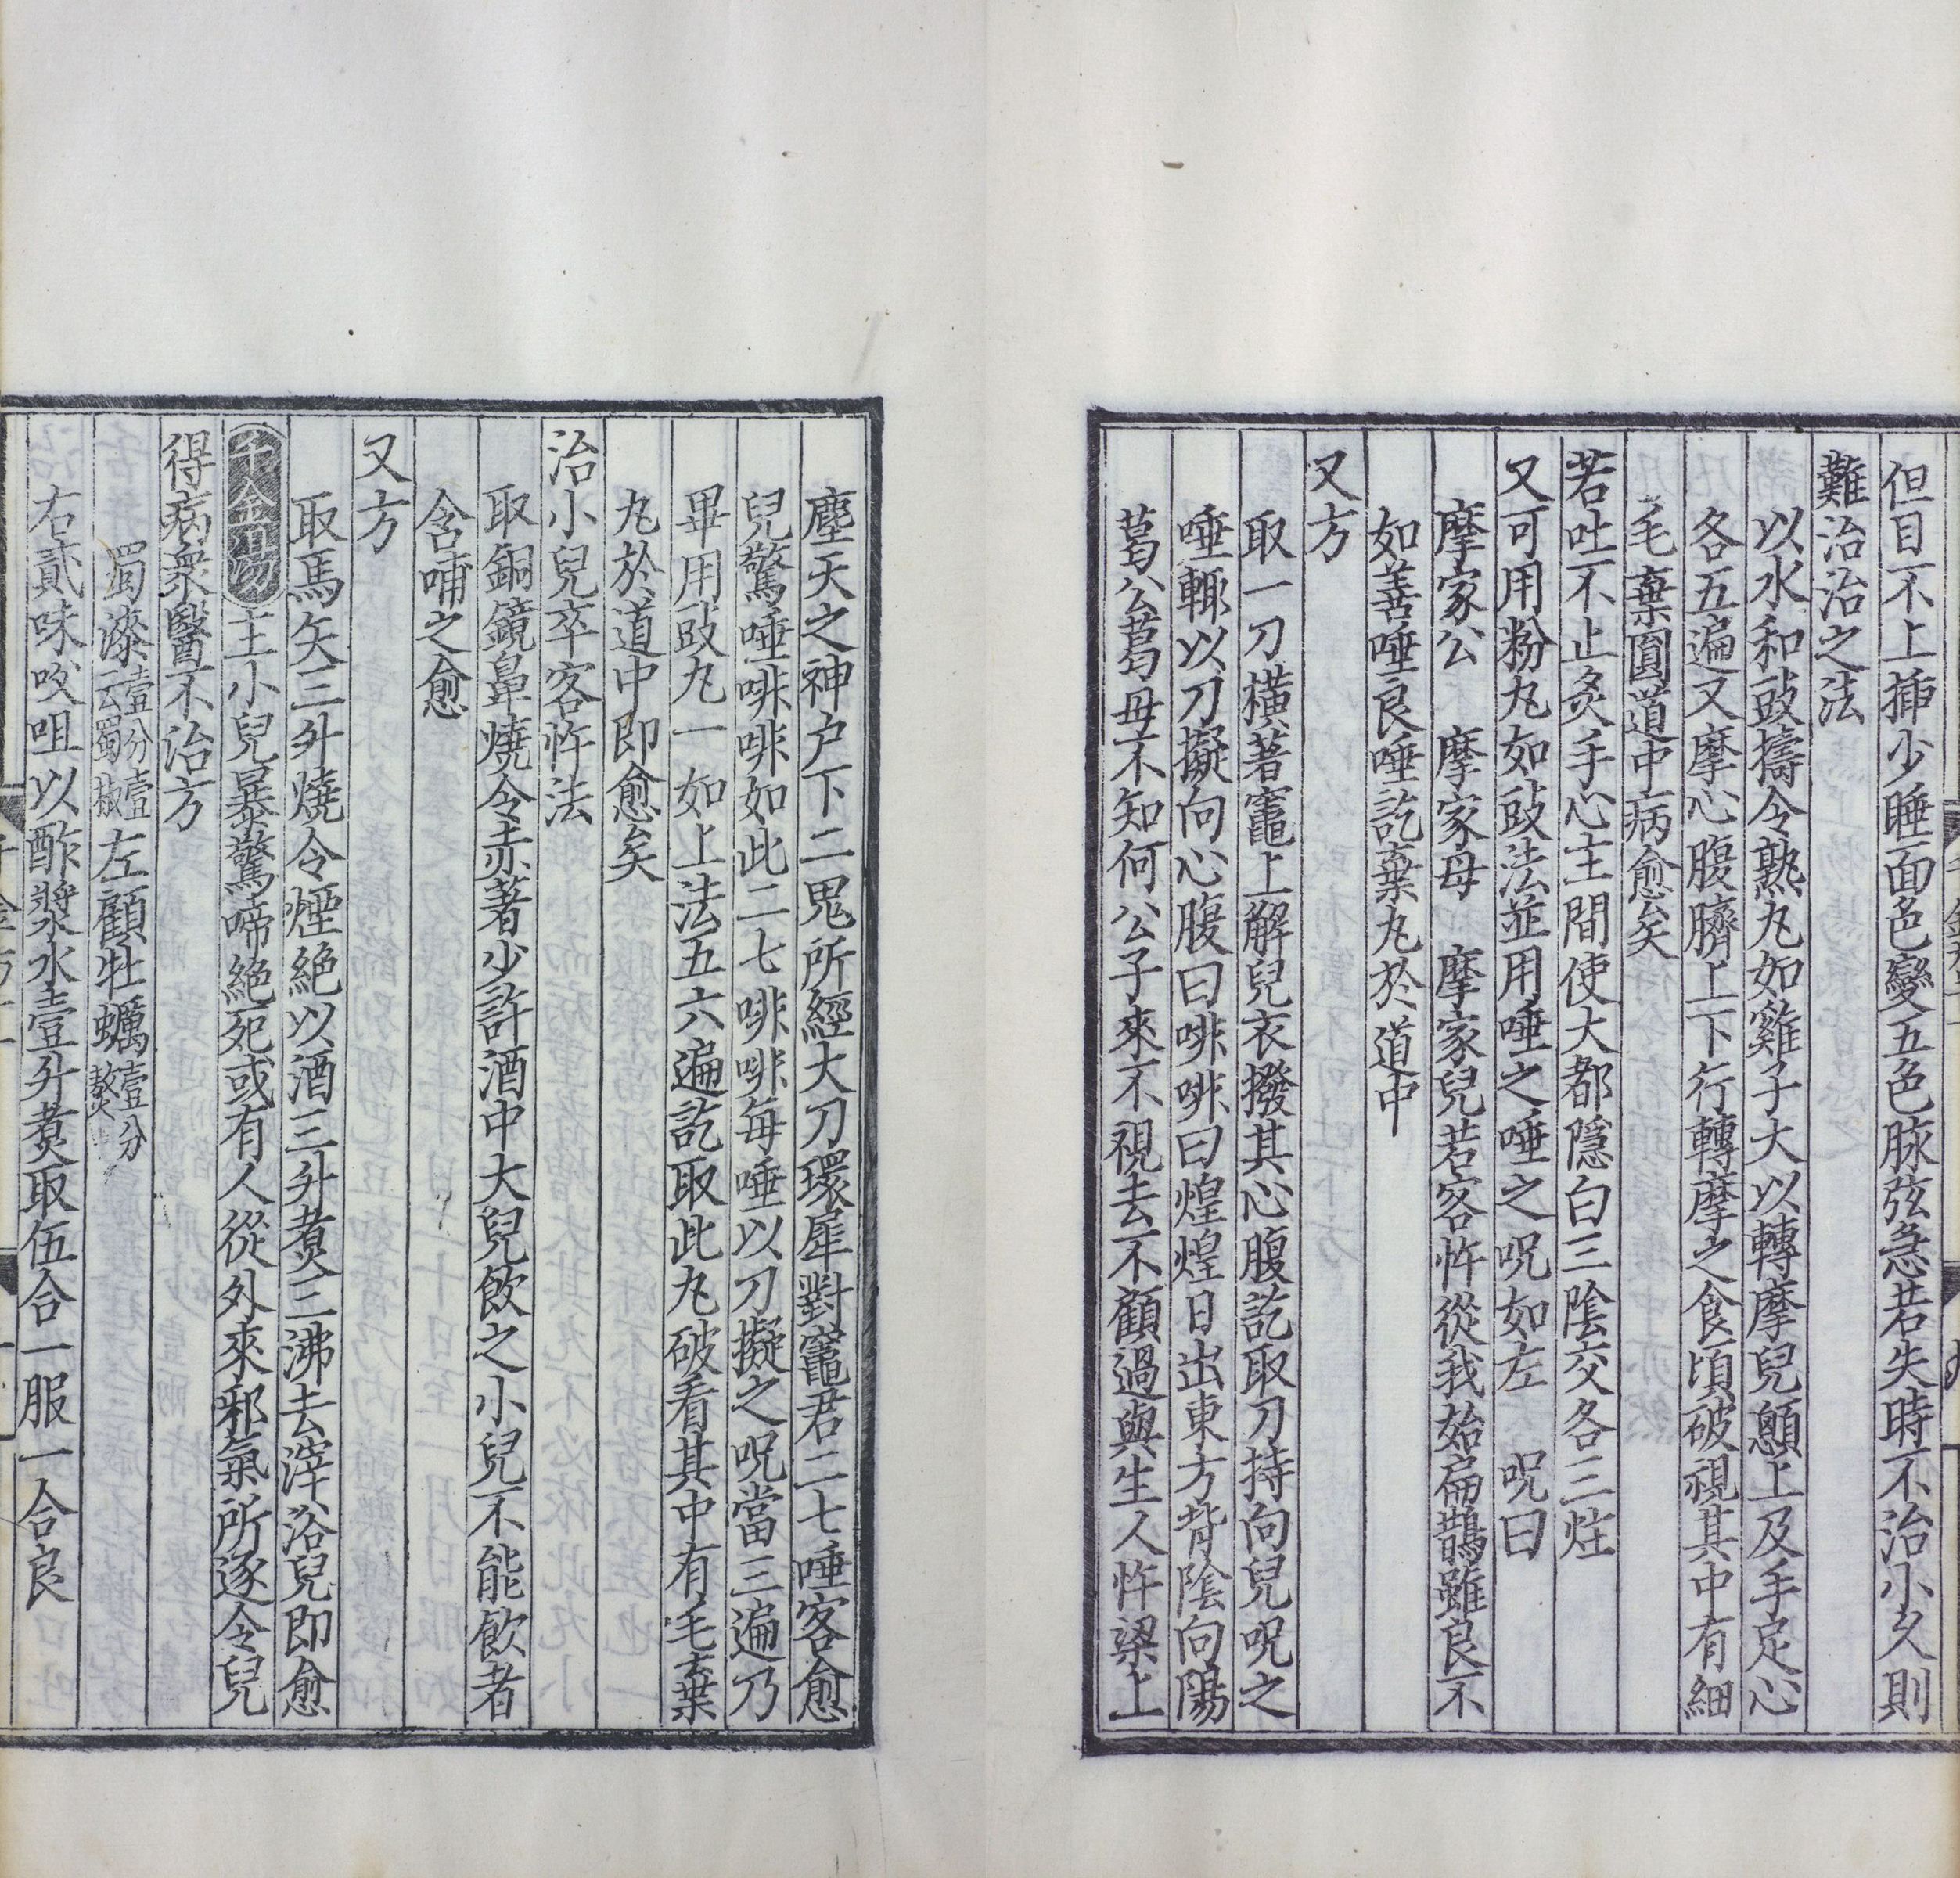 但目不上揷少睡面色變五色脉弦急若失時不治小乆則
難治治之法
以水和豉擣令熟丸如雞子大以轉摩兒顖上及手足心
各五遍又摩心腹臍上下行轉摩之食頃破視其中有細
毛棄圓道中病愈矣
若吐不止灸手心主間使大都隱白三隂交各三炷
又可用粉丸如豉法並用唾之唾之呪如左 呪曰
摩家公 摩家母 摩家兒若客忤從我始扁鵲雖良不
如善唾良唾訖棄丸於道中
又方
取一刀橫著竈上解兒衣撥其心腹訖取刀持向兒呪之
唾輙以刀擬向心腹曰啡啡曰煌煌日出東方背隂向陽
葛公葛母不知何公子來不視去不顧過與生人忤梁上
塵天之神户下二鬼所經大刀環犀對竈君二七唾客愈
兒驚唾啡啡如此二七啡啡每唾以刀擬之呪當三遍乃
畢用豉丸一如上法五六遍訖取此丸破看其中有毛棄
丸於道中即愈矣
治小兒卒客忤法
取銅鏡鼻燒令赤著少許酒中大兒飲之小兒不能飲者
含哺之愈
又方
取馬矢三升燒令煙絕以酒三升煑三沸去滓浴兒即愈
千金湯主小兒暴驚啼絕死或有人從外來邪氣所逐令兒
得病衆醫不治方
蜀漆壹分壹云蜀椒左顧牡蠣壹分熬
右貳味㕮咀以酢漿水壹升煑取伍合一服一合良